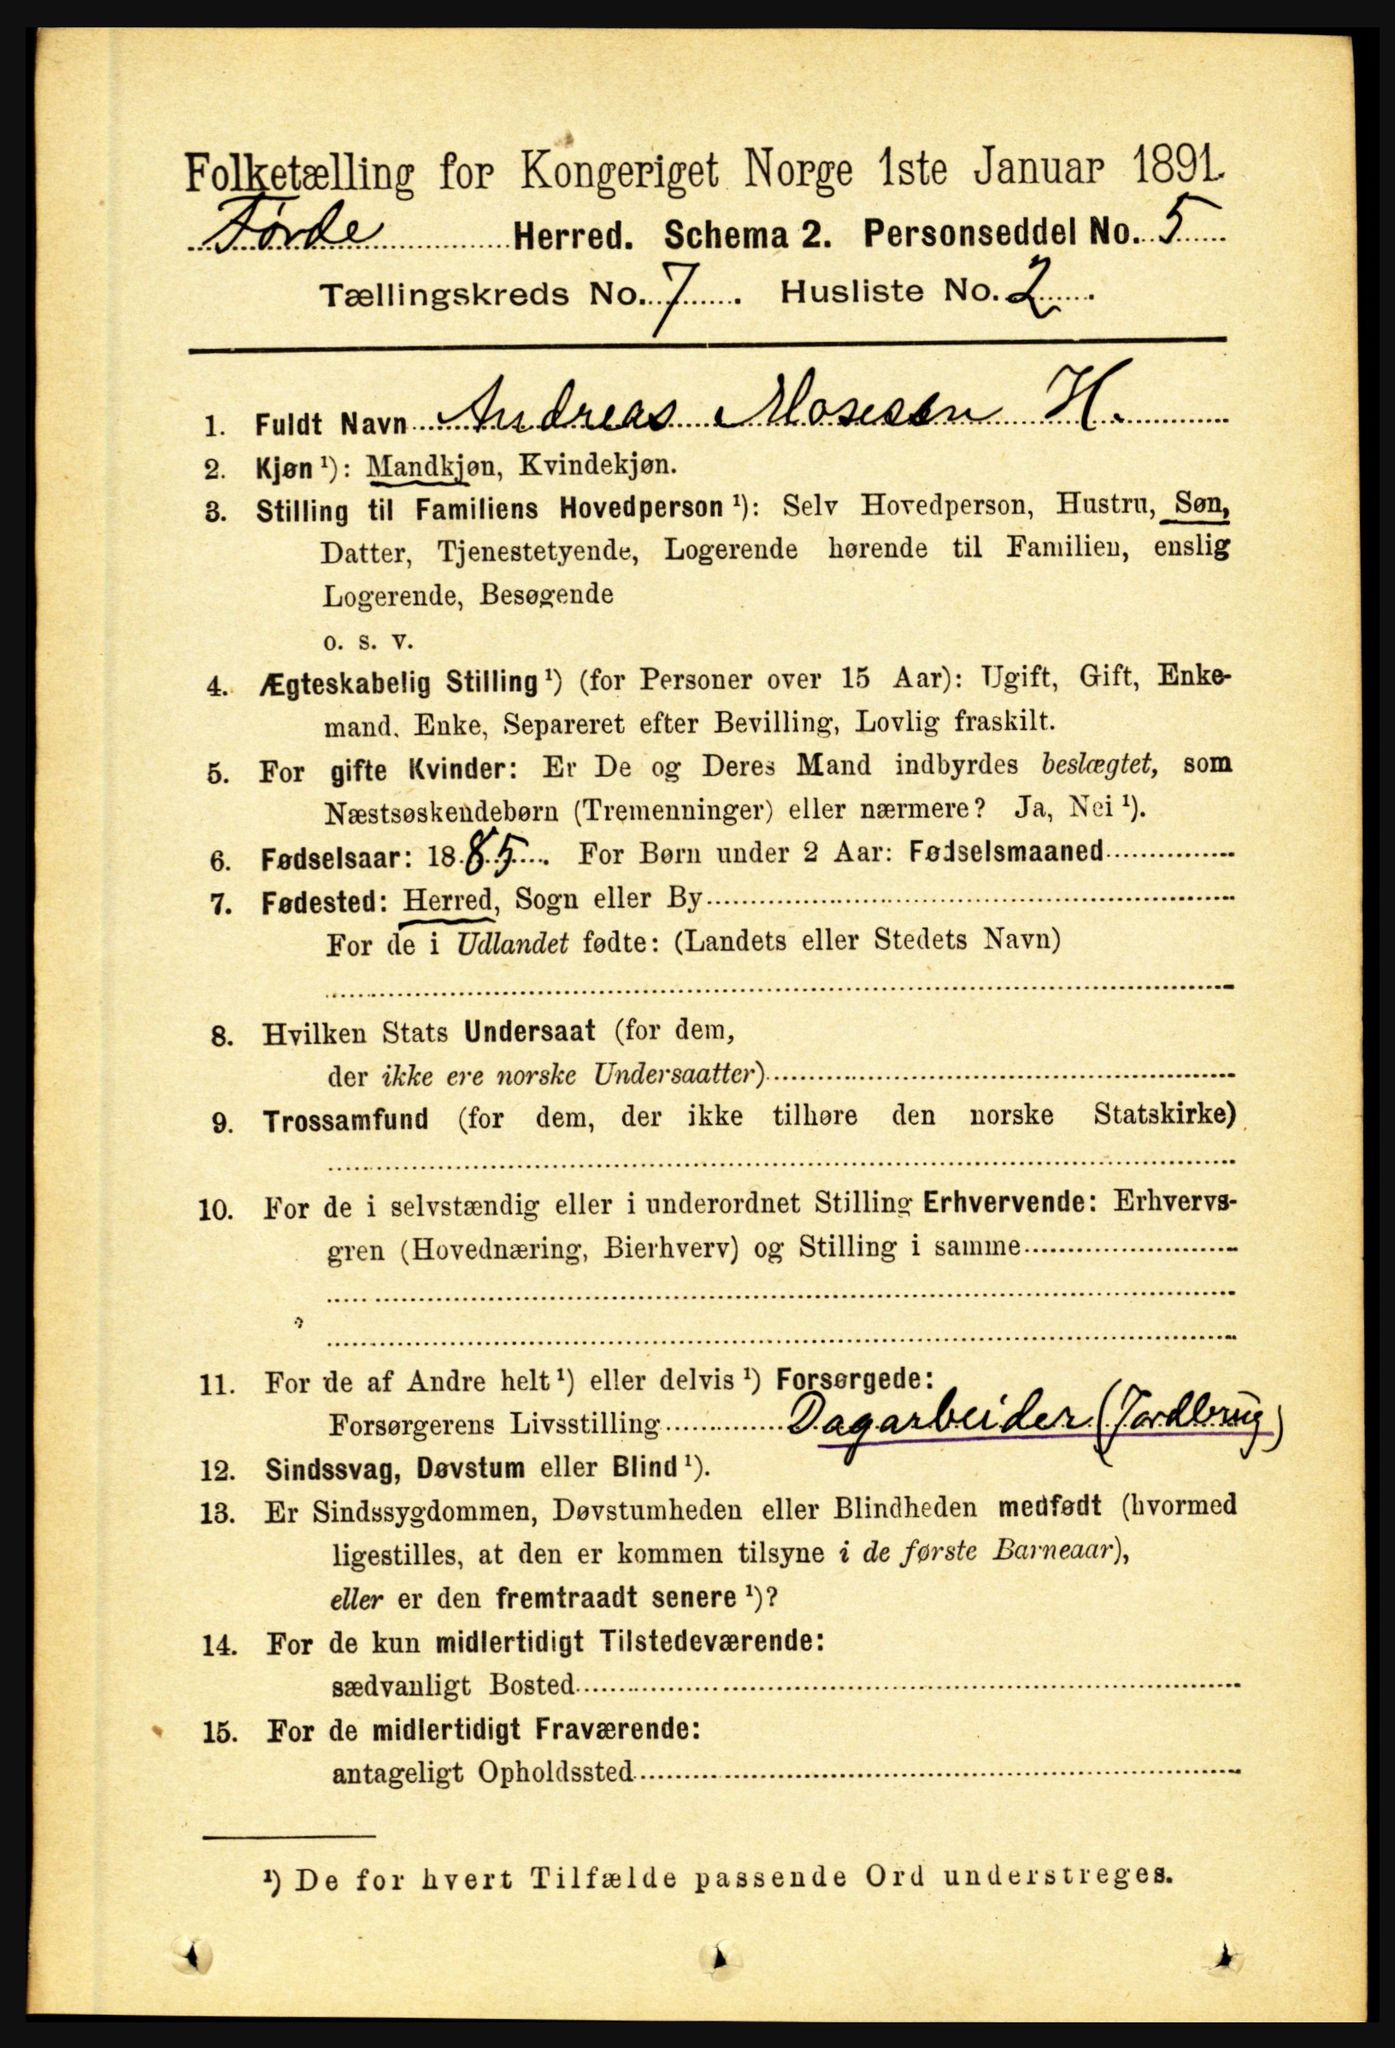 Folketælling for Kongeriget Norge 1ste Januar 1891.
Førde Herred. Schema 2. Personseddel No. 5
Tællingskreds No. 7. Husliste No. 2.
1. Fuldt Navn Andreas Mosesen H.
2. Kjøn ¹): Mandkjøn, Kvindekjøn.
3. Stilling til Familiens Hovedperson ¹): Selv Hovedperson, Hustru, Søn,
Datter, Tjenestetyende, Logerende hørende til Familien, enslig
Logerende, Besøgende
o. s. v.
4. Ægteskabelig Stilling ¹) (for Personer over 15 Aar): Ugift, Gift, Enke-
mand, Enke, Separeret efter Bevilling, Lovlig fraskilt.
5. For gifte Kvinder: Er De og Deres Mand indbyrdes beslægtet, som
Næstsøskendebørn (Tremenninger) eller nærmere? Ja, Nei ¹).
6. Fødselsaar: 1885. For Børn under 2 Aar: Fødselsmaaned
7. Fødested: Herred, Sogn eller By
For de i Udlandet fødte: (Landets eller Stedets Navn)
8. Hvilken Stats Undersaat (for dem,
der ikke ere norske Undersaatter)
9. Trossamfund (for dem, der ikke tilhøre den norske Statskirke)
10. For de i selvstændig eller i underordnet Stilling Erhvervende: Erhvervs-
gren (Hovednæring, Bierhverv) og Stilling i samme
11. For de af Andre helt ¹) eller delvis ¹) Forsørgede:
Forsørgerens Livsstilling Dagarbeider (Jordbrug)
12. Sindssvag, Døvstum eller Blind ¹).
13. Er Sindssygdommen, Døvstumheden eller Blindheden medfødt (hvormed
ligestilles, at den er kommen tilsyne i de første Barneaar),
eller er den fremtraadt senere ¹)?
14. For de kun midlertidigt Tilstedeværende:
sædvanligt Bosted
15. For de midlertidigt Fraværende:
antageligt Opholdssted
¹) De for hvert Tilfælde passende Ord understreges.